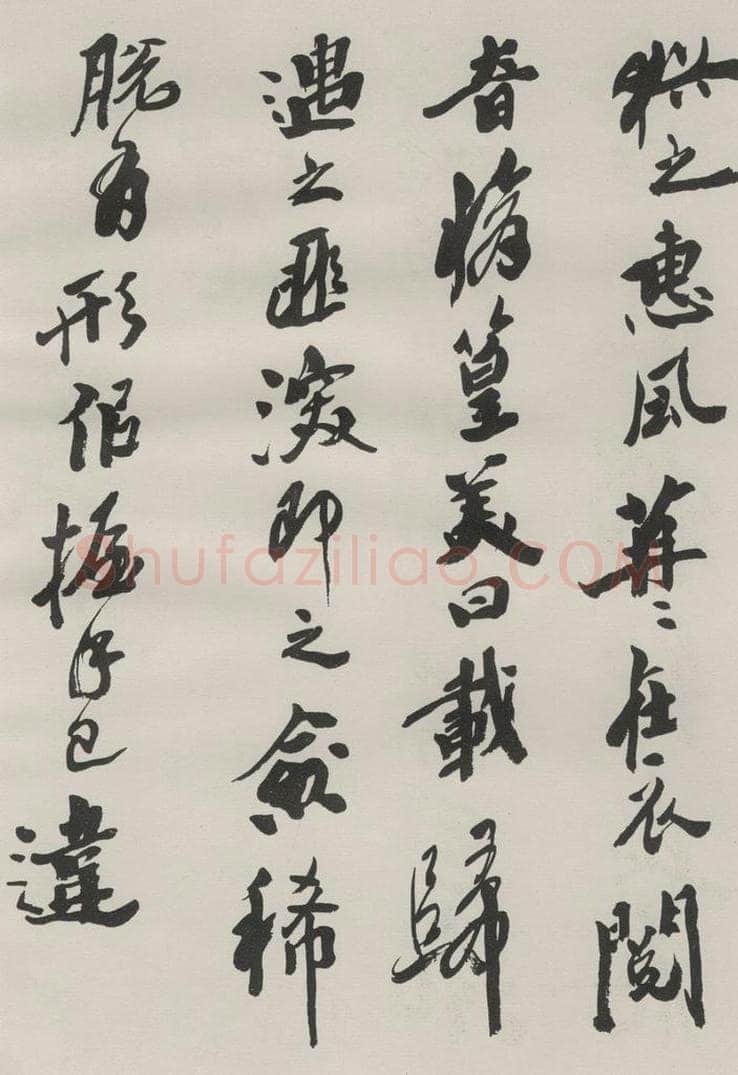 猶之惠風苒〻在衣閱
音脩篁美曰載歸
遇之匪深即之愈稀
脫有形佀握手已違
Shufaziliao.COM